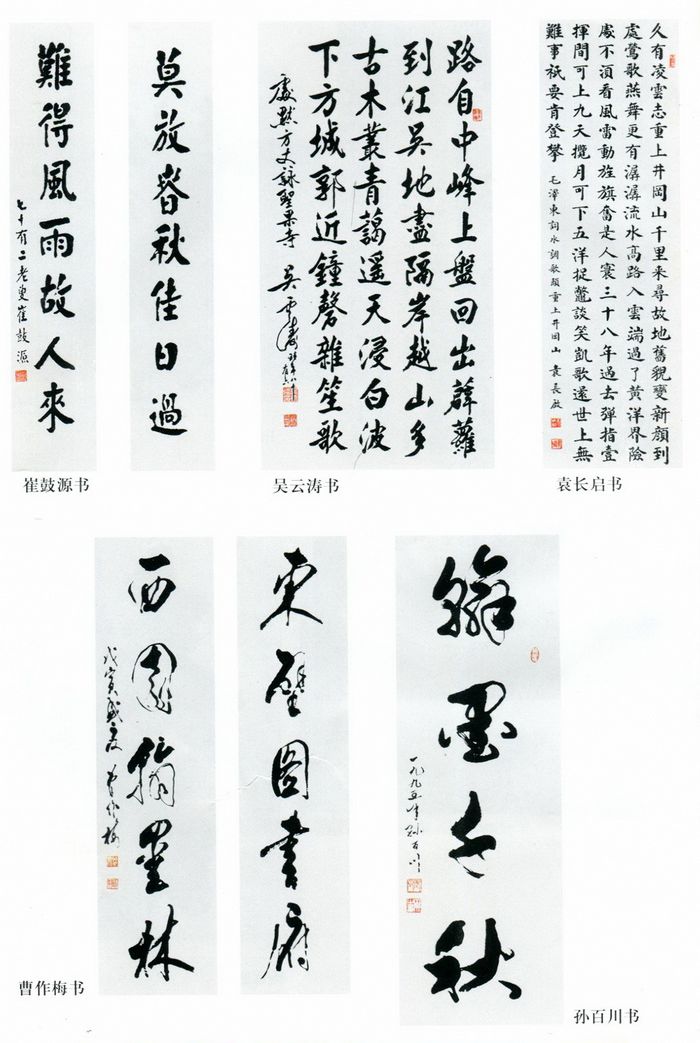 莫放春秋佳日過
難得風雨故人來
七十有二老叟崔鼓源
崔鼓源书
路自中峰上盤回出薜蘿
到江吳地盡隔岸越山多
古木叢青藹遥天浸白波
下方城郭近鐘磬雜笙歌
處默方丈詠聖果寺 吳雲濤
吴云涛书
久有凌雲志重上井岡山千里來尋故地舊貌變新顏到
處鶯歌燕舞更有潺潺流水高路入雲端過了黄洋界險
處不須看風雷動旌旗奮是人寰三十八年過去彈指壹
揮間可上九天攬月可下五洋捉鱉談笑凱歌還世上無
難事祇要肯登攀 毛澤東詞水調歌頭重上井岡山 袁長啟
袁长启书
東壁圖書府
西園翰墨林
戊寅盛夏曹作梅
曹作梅书
翰墨千秋
一九九五年孫百川
孙百川书